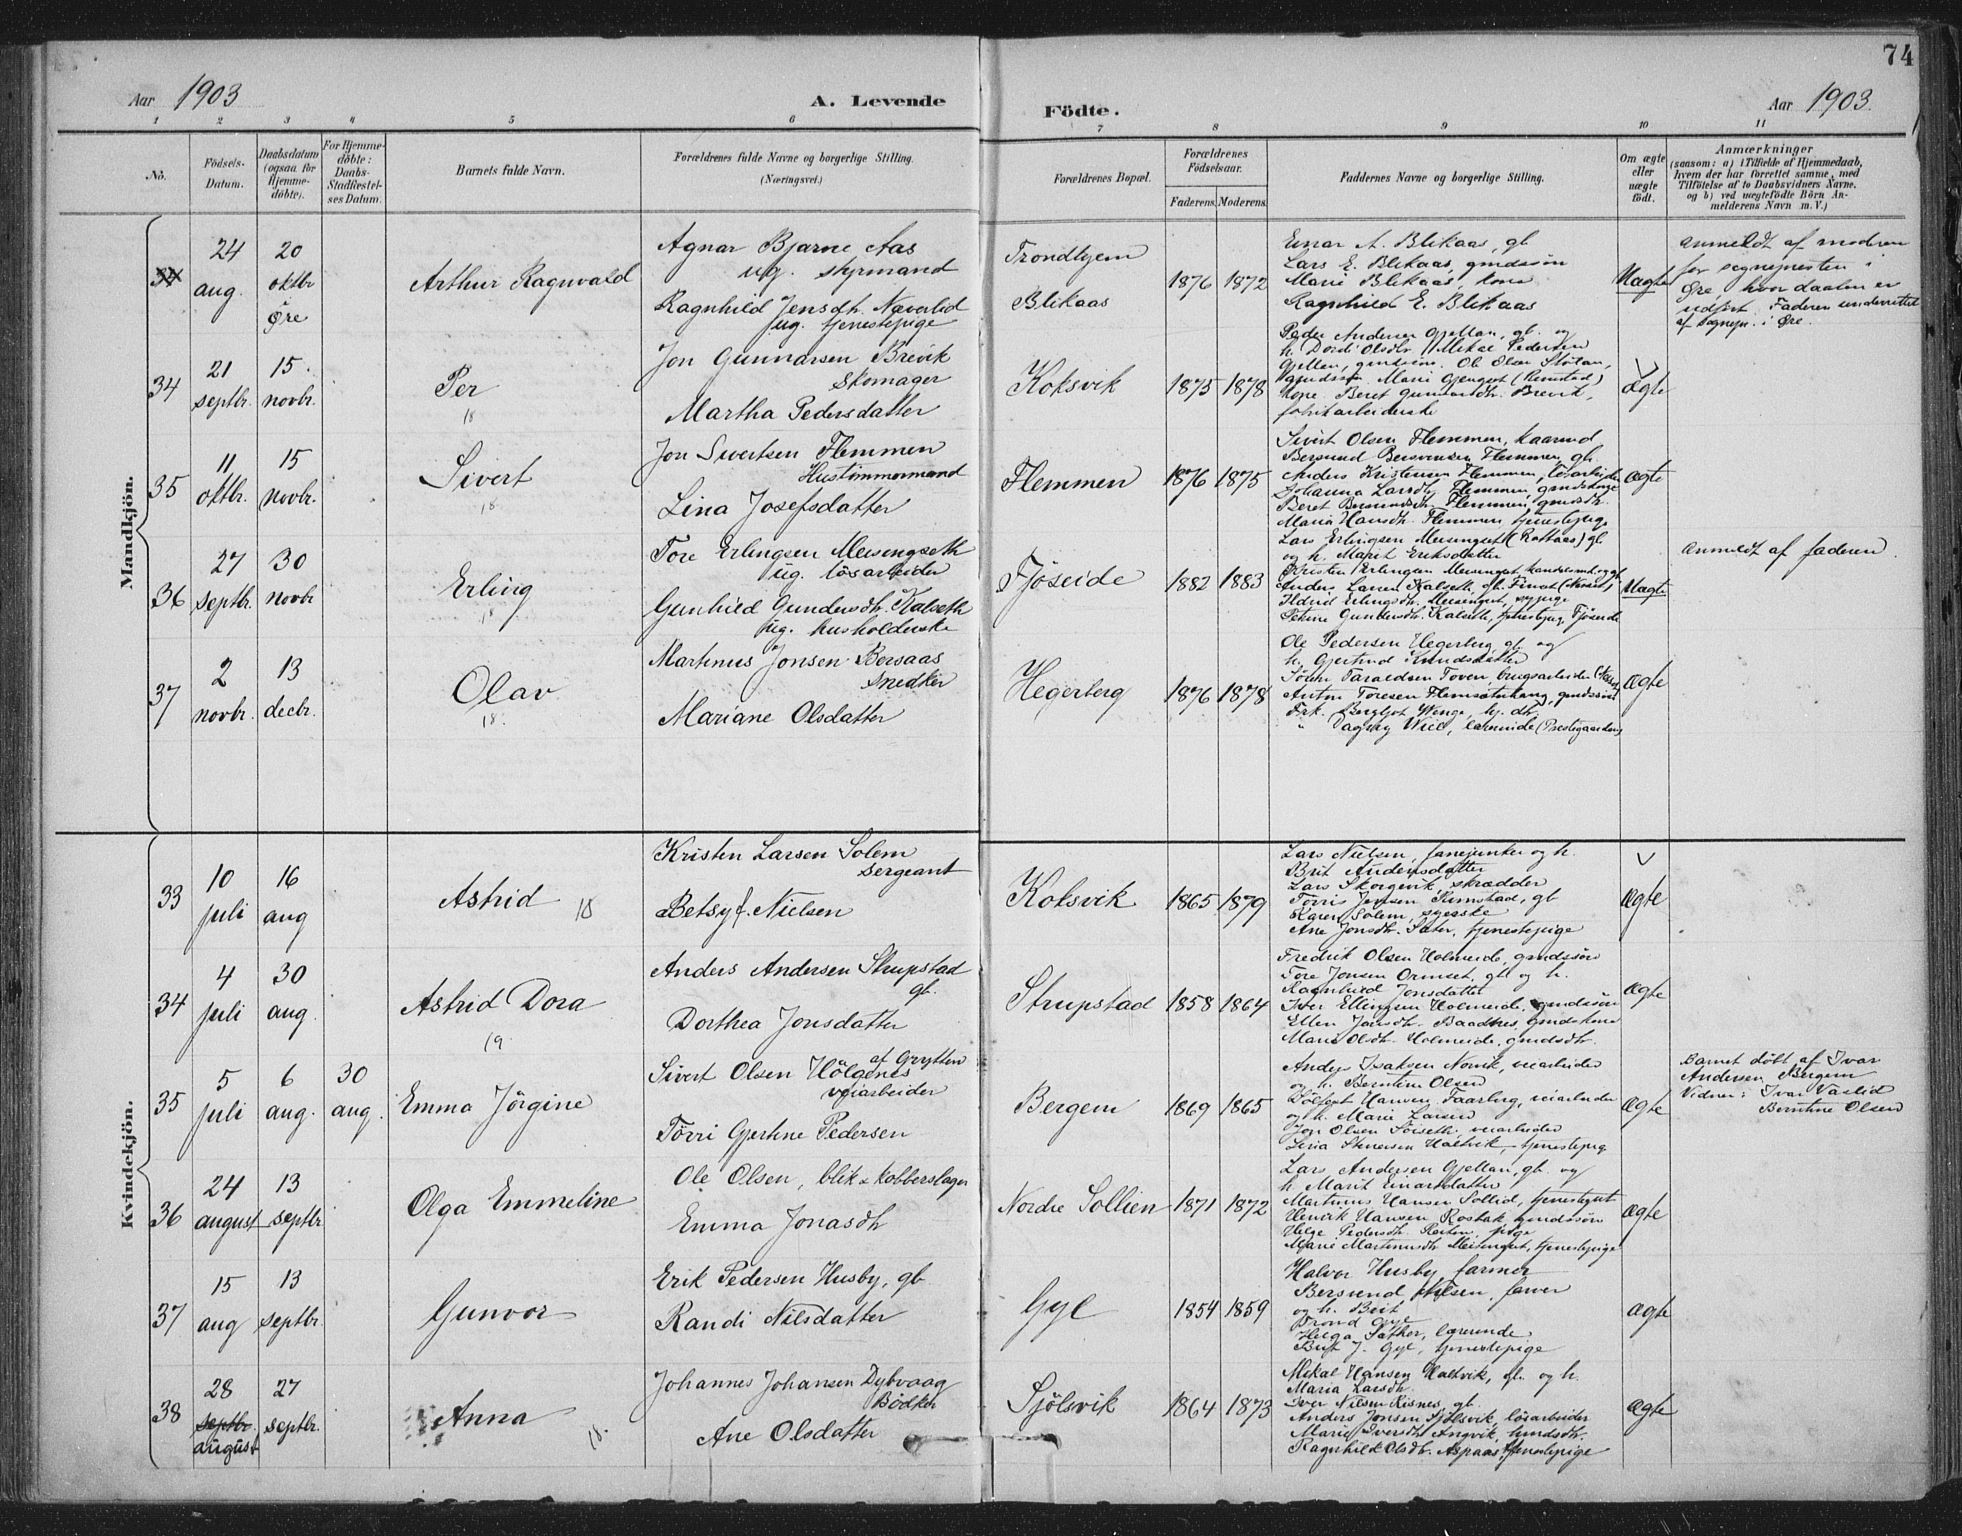 74
Aar 1903
A. Levende
Födte.
Aar 1903
1 2 3 4 5 6 7 8 9 10 11
No.
Födsels-
Datum.
Daabsdatum
(ogsaa for
Hjemme-
döbte).
For Hjemme-
döbte:
Daabs-
Stadfæstel-
ses Datum.
Barnets fulde Navn.
Forældrenes fulde Navne og borgerlige Stilling.
(Næringsvei.)
Forældrenes Bopæl.
Forældrenes
Födselsaar.
Faderens.
Moderens.
Faddernes Navne og borgerlige Stilling.
Om ægte
eller
uægte
födt.
Anmærkninger
(saasom: a) i Tilfælde af Hjemmedaab,
hvem der har forrettet samme, med
Tilföielse af to Daabsvidners Navne,
og b) ved uægtefödte Börn An-
melderens Navn m. V.)
Mandkjön.
34
24
aug.
20
oktbr
Øre
Arthur Ragnvald
Agnar Bjarne Aas
ug. styrmand
Ragnhild Jensdtr. Næverlid
ug. tjenestepige
Trondhjem
Blikaas
1876
1872
Einar A. Blikaas, gb
Lars E. Blikaas, gmdssön
Marie Blikaas, kone
Ragnhild E. Blikaas
Uægte
anmeldt af moderen
for sognepresten i
Øre, hvor daaben er
udført. Faderen underrettet
af sognepr. i Øre.
34
21
septbr.
15.
novbr.
Per
18
Jon Gunnarsen Brevik
Skomager
Martha Pedersdatter
Koksvik
1875
1878
Peder Andersen Gjellan, gb. og
h. Dordi Olsdtr. Mikal Pedersen
Gjellan, gmdssön. Ole Olsen
gmdssön. Marie (Rimstad)
kone Beret Gunnarsdtr. Brevik,
fabrikarbeiderske
Ægte
35
11
oktbr.
15
novbr.
Sivert
18
Jon Sivertsen Flemmen
Hustömmermand
Lina Josefsdatter
Flemmen
1876
1875
Sivert Olsen Flemmen, kaarmd
Bersvend Bersvensen Flemmen, gb.
Anders Kristensen Flemmen, lösarbeider
Johanna Larsdtr Flemmen, gmdskone
Beret Flemmen, gmdsdtr.
Maria Hansdtr. Flemmen tjenestepige
Ægte
36
27
septbr.
30
novbr
Erling
18
Tore Erlingsen Meisingseth
ug. lösarbeider
Gunhild Gundersdtr. Kalseth
ug. husholderske
Fjöseide
1882
1883
Lars Erlingsen Meisingset (Roltaas) gb
og h. Marit Eriksdatter
Kristen Erlingsen Meisingset, handelsmd. og gb
Anders Larsen Kalseth, gb. Finset (Nesset)
Ildrid Erlingsdtr. Meisingset, sypige
Petrine Gundersdtr. Kalseth, tjenestepig, Fjöseide
Uægte
anmeldt af faderen.
37
2
novbr.
13
decbr.
Olav
18.
Martinus Jonsen Bersaas
Snedker
Mariane Olsdatter
Hegerberg
1876
1878
Ole Pedersen Hegerberg gb. og
h. Gjertrud Knudsdatter
Taraldsen Toven, brugsarbeider
Anton Toresen Flemsæterhaug, gmdssön
Frk. Bergljot Wenge, hj. dtr.
" Dagny Wiel, lærerinde (Prestegaarden)
Ægte
Kvindekjön.
33
10
juli
16
aug
Astrid
18
Kristen Larsen Solem
Sergeant
Betsy f. Nielsen
Koksvik
1865
1879
Lars Nielsen, fanejunker og h.
Brit Andersdatter
Lars Skorgevik, skrædder
Torris Jensen Rimstad, gb
Karen Solem, syerske
Ane Jonsdtr. Sæter, tjenestepige
Ægte
34
4
juli
30
aug.
Astrid Dora
19
Anders Andersen Strupstad
gb.
Dorthea Jonsdatter
Strupstad
1858
1864
Fredrik Olsen Holmeide, gmdssön
Tore Jonsen Ormset, gb. og h.
Ragnhild Jonsdatter
Iver Ellingsen Holmeide, gmdssön
Ellen Jonsdtr. Baadnes, gmdskone
Marie Olsdtr. Holmeide, gmdsdtr.
Ægte
35
5
juli
6
aug.
30
aug.
Emma Jörgine
Sivert Olsen Hölgenes
af Grytten
veiarbeider
Torri Gjertine Pedersen
Bergem
1869
1865
Anders Isaksen Norvik, veiarbeider
og h. Berntine Olsen
Hansen Faarberg, veiarbeider
og h. Marie Larsen
Jon Olsen Söiseth, veiarbeider
Lina Stenersen Haltvik, tjenestepig
Ægte
Barnet döbt af Ivar
Andersen Bergem
Vidner: Ivar Vaslid
Berntine Olsen
36
24
august
13
septbr
Olga Emmeline
Ole Olsen, blik & kobberslager
Emma Jonasdtr
Nordre Sollien
1871
1872
Lars Andersen Gjellan, gb. og
h. Marit Einarsdatter
Martinus Hansen Sollid, tjenestegut
Henrik Hansen Rostak, gmdssön
Helge Pedersdtr. pige
Marie Martinusdtr. Meisingset, tjenestepige
Ægte
37
15
aug
13
septbr.
Gunvor
Erik Pedersen Husby, gb
Randi Nilsdatter
Gyl
1854
1859
Halvor Husby farmer
Bersvend Nilsen, farver
og h. Brit
Trond Gyl
Helga Sæther, lærerinde
Brit J. Gyl, tjenestepige
ægte
38
28
septbr.
august
27
septbr.
Anna
18.
Johannes Johansen Dybvaag
Bödker
Ane Olsdatter
Sjölsvik
1864
1873
Mikal Hansen Haltvik, gb. og h.
Maria Larsdtr.
Iver Nilsen Risnes, gb.
Anders Jonsen Sjölsvik, lösarbeider
Marie Iversdtr. Angvik, gmdsdtr.
Ragnhild Olsdtr. Aspaas, tjenestepige
Ægte